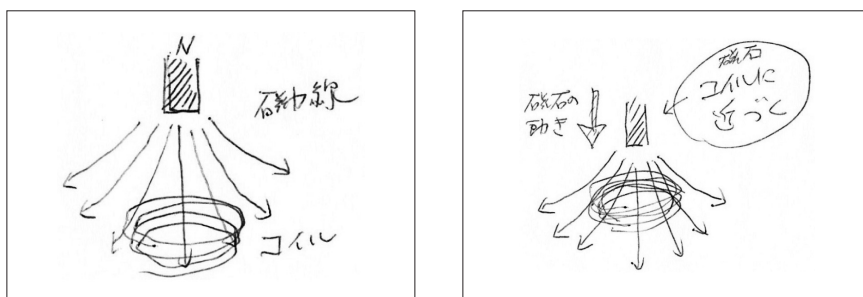 N
磁力線
コイル
磁石の
動き
磁石
コイルに
近づく